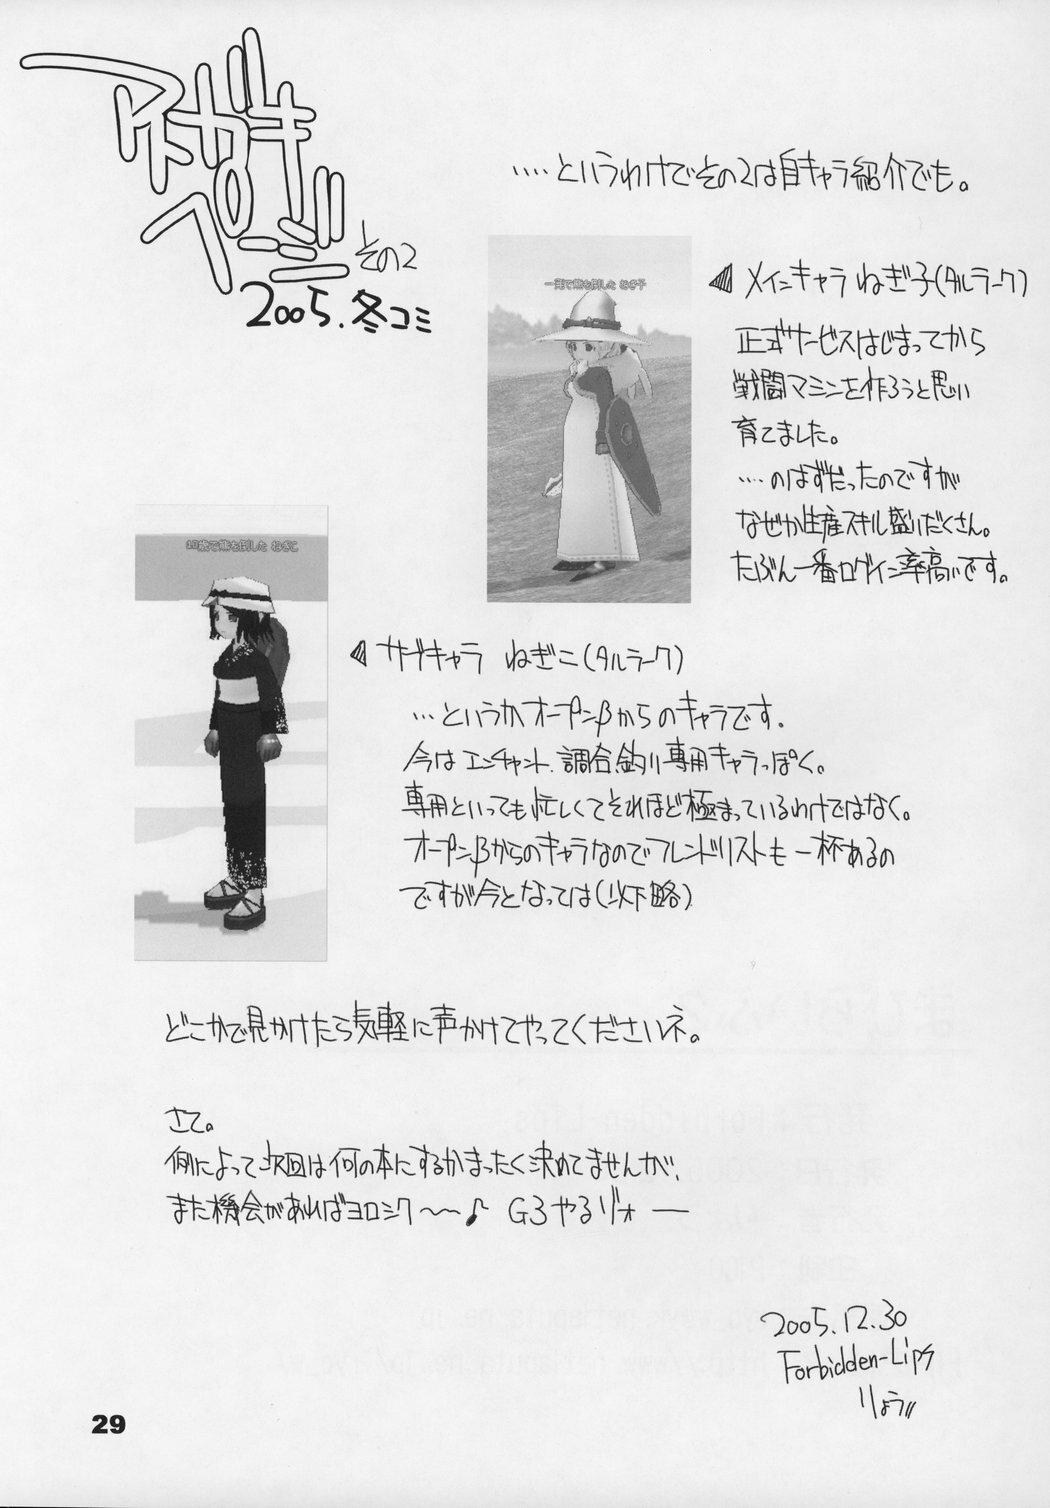 アトガキ
ページ
その2
2005.冬コミ
‥‥というわけでその2は自キャラ紹介でも。
一発で熊を倒した ねぎ子
◀メインキャラ ねぎ子(タルラーク)
正式サービスはじまってから
戦闘マシンを作ろうと思い
育てました。
‥‥のはずだったのですが
なぜか生産スキル盛りだくさん。
たぶん一番ログイン率高いです。
10歳で熊を倒した ねぎこ
◀サブキャラ ねぎこ(タルラーク)
‥‥というかオープンβからのキャラです.
今はエンチャント、調合、釣り専用キャラっぽく。
専用といっても忙しくてそれほど極まっているわけではなく。
オープンβからのキャラなのでフレンドリストも一杯あるの
ですが今となっては(以下略)
どこかで見かけたら気軽に声かけてやってくださいネ。
さて。
例によって次回は何の本にするかまったく決めてませんが、
また機会があればヨロシク〜〜♪ G3やるゾォー
2005.12.30
Forbidden-Lips
りょう
29